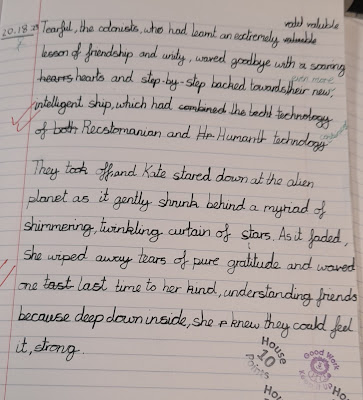 valuable
20.18 Tearful, the colonists, who had learnt an extremely valuable
lesson of friendship and unity, waved goodbye with a soaring
hearrs hearts and step-by-step backed towards their new,
even more
intelligent ship, which had combined the techt technology
of both Recstomanian and Hr Humantt technology
They took off and Kate stared down at the alien
planet as it gently shrunk behind a myriad of
shimmering, twinkling curtain of stars. As it faded,
she wiped away tears of pure gratitude and waved
one tast last time to her kind, understanding friends
because deep down inside, she knew they could feel
it, strong.
House
10
Points
Good Work
House
Ho